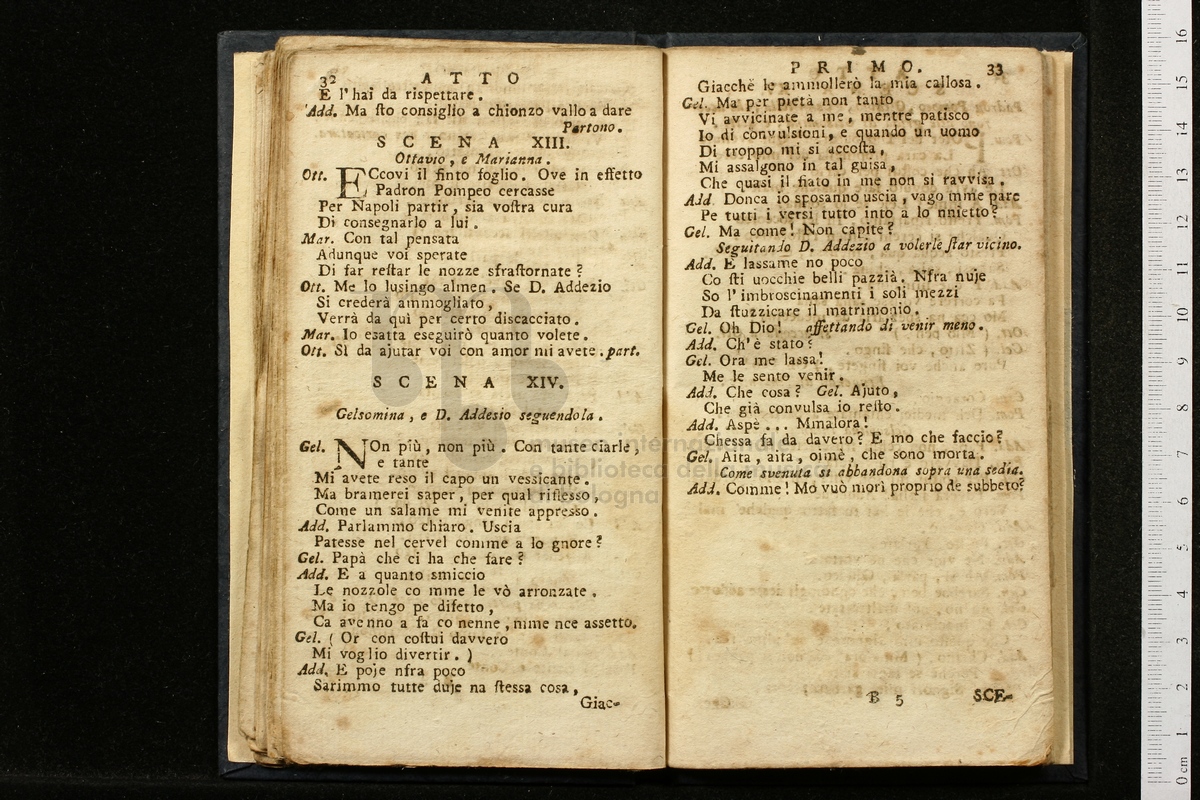 32 ATTO
E l'hai da rispettare.
Add. Ma ſto consiglio a chionzo vallo a dare
Partono.
SCENA XIII.
Ottavio, e Marianna.
Ott. ECcovi il finto foglio. Ove in effetto
Padron Pompeo cercasse
Per Napoli partir, sia voſtra cura
Di consegnarlo a lui.
Mar. Con tal pensata
Adunque voi sperate
Di far reſtar le nozze sfraſtornate?
Ott. Me lo lusingo almen. Se D. Addezio
Si crederà ammogliato,
Verrà da quì per certo discacciato.
Mar. Io esatta eseguirò quanto volete.
Ott. Sì da ajutar voi con amor mi avete. part.
SCENA XIV.
Gelsomina, e D. Addesio seguendola.
Gel. NOn più, non più. Con tante ciarle,
e tante
Mi avete reso il capo un vessicante.
Ma bramerei saper, per qual riflesso,
Come un salame mi venite appresso.
Add. Parlammo chiaro. Uscia
Patesse nel cervel comme a lo gnore?
Gel. Papà che ci ha che fare?
Add. E a quanto smiccio
Le nozzole co mme le vò arronzate.
Ma io tengo pe difetto,
Ca avenno a fa co nenne, mme nce assetto.
Gel. ( Or con coſtui davvero
Mi voglio divertir. )
Add. E poje nfra poco
Sarimmo tutte duje na ſtessa cosa,
Giac-
PRIMO. 33
Giacchè le ammollerò la mia callosa.
Gel. Ma per pietà non tanto
Vi avvicinate a me, mentre patisco
Io di convulsioni, e quando un uomo
Di troppo mi si accoſta,
Mi assalgono in tal guisa,
Che quasi il fiato in me non si ravvisa.
Add. Donca io sposanno uscia, vago mme pare
Pe tutti i versi tutto into a lo nnietto?
Gel. Ma come! Non capite?
Seguitando D. Addezio a volerle ſtar vicino.
Add. E lassame no poco
Co ſti uocchie belli pazzià. Nfra nuje
So l'imbroscinamenti i soli mezzi
Da ſtuzzicare il matrimonio.
Gel. Oh Dio! affettando di venir meno.
Add. Ch'è stato?
Gel. Ora me lassa!
Me le sento venir.
Add. Che cosa? Gel. Ajuto,
Che già convulsa io reſto.
Add. Aspè... Mmalora!
Chessa fa da davero? E mo che faccio?
Gel. Aita, aita, oimè, che sono morta.
Come svenuta si abbandona sopra una sedia.
Add. Comme! Mo vuò morì proprio de subbeto?
B 5 SCE-